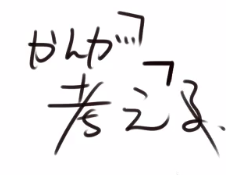 かんが…
考える.